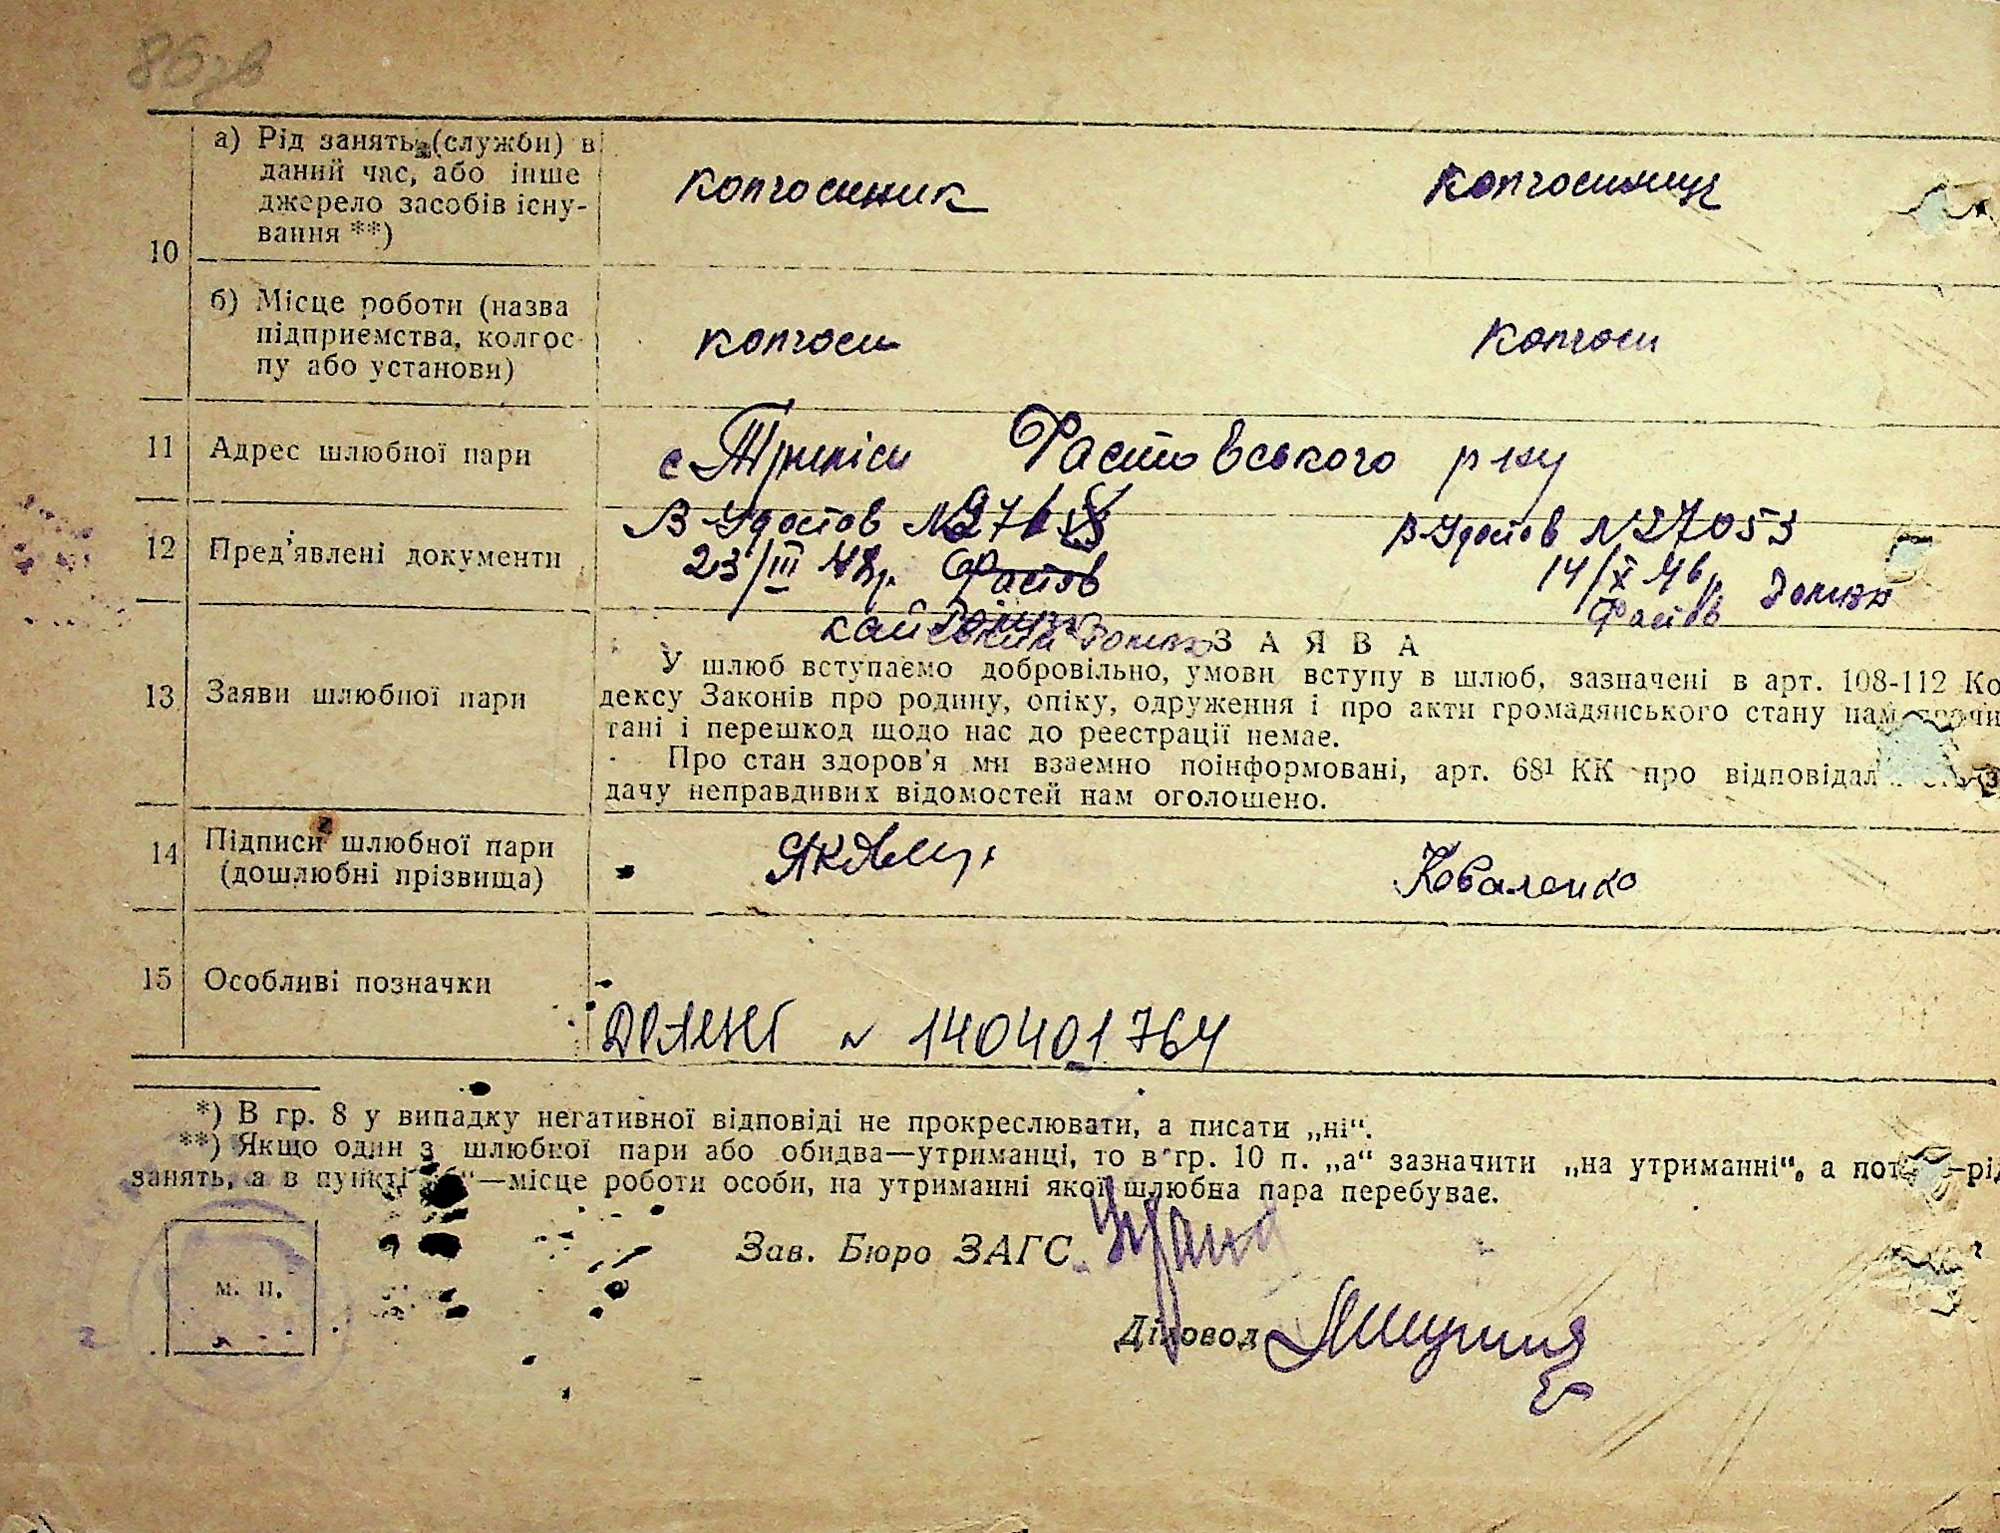 86 зв
а) Рід занять (служби) в
даний час, або інше
джерело засобів існу-
вання **)
колгоспник колгоспниця
10
б) Місце роботи (назва
підприємства, колгос-
пу або установи)
колгосп колгосп
11 Адрес шлюбної пари
с Триліси Фастовського р ну
12 Пред'явлені документи
В Удостов № В Удостов № 27053
23/III 48р. Фастов 14/X 46р
Фастов
13 Заяви шлюбної пари
ЗАЯВА
У шлюб вступаємо добровільно, умови вступу в шлюб, зазначені в арт. 108-112 Ко
дексу Законів про родину, опіку, одруження і про акти громадянського стану нам прочи
тані і перешкод щодо нас до реєстрації немає.
Про стан здоров'я ми взаємно поінформовані, арт. 68¹ КК про відповідал з
дачу неправдивих відомостей нам оголошено.
14 Підписи шлюбної пари
(дошлюбні прізвища)
Коваленко
15 Особливі позначки
№ 140401764
*) В гр. 8 у випадку негативної відповіді не прокреслювати, а писати „ні“.
**) Якщо один з шлюбної пари або обидва—утриманці, то в гр. 10 п. „а“ зазначити „на утриманні“, а пот —рід
занять, а в пункті „б“—місце роботи особи, на утриманні якої шлюбна пара перебуває.
Зав. Бюро ЗАГС
м. п.
Діловод